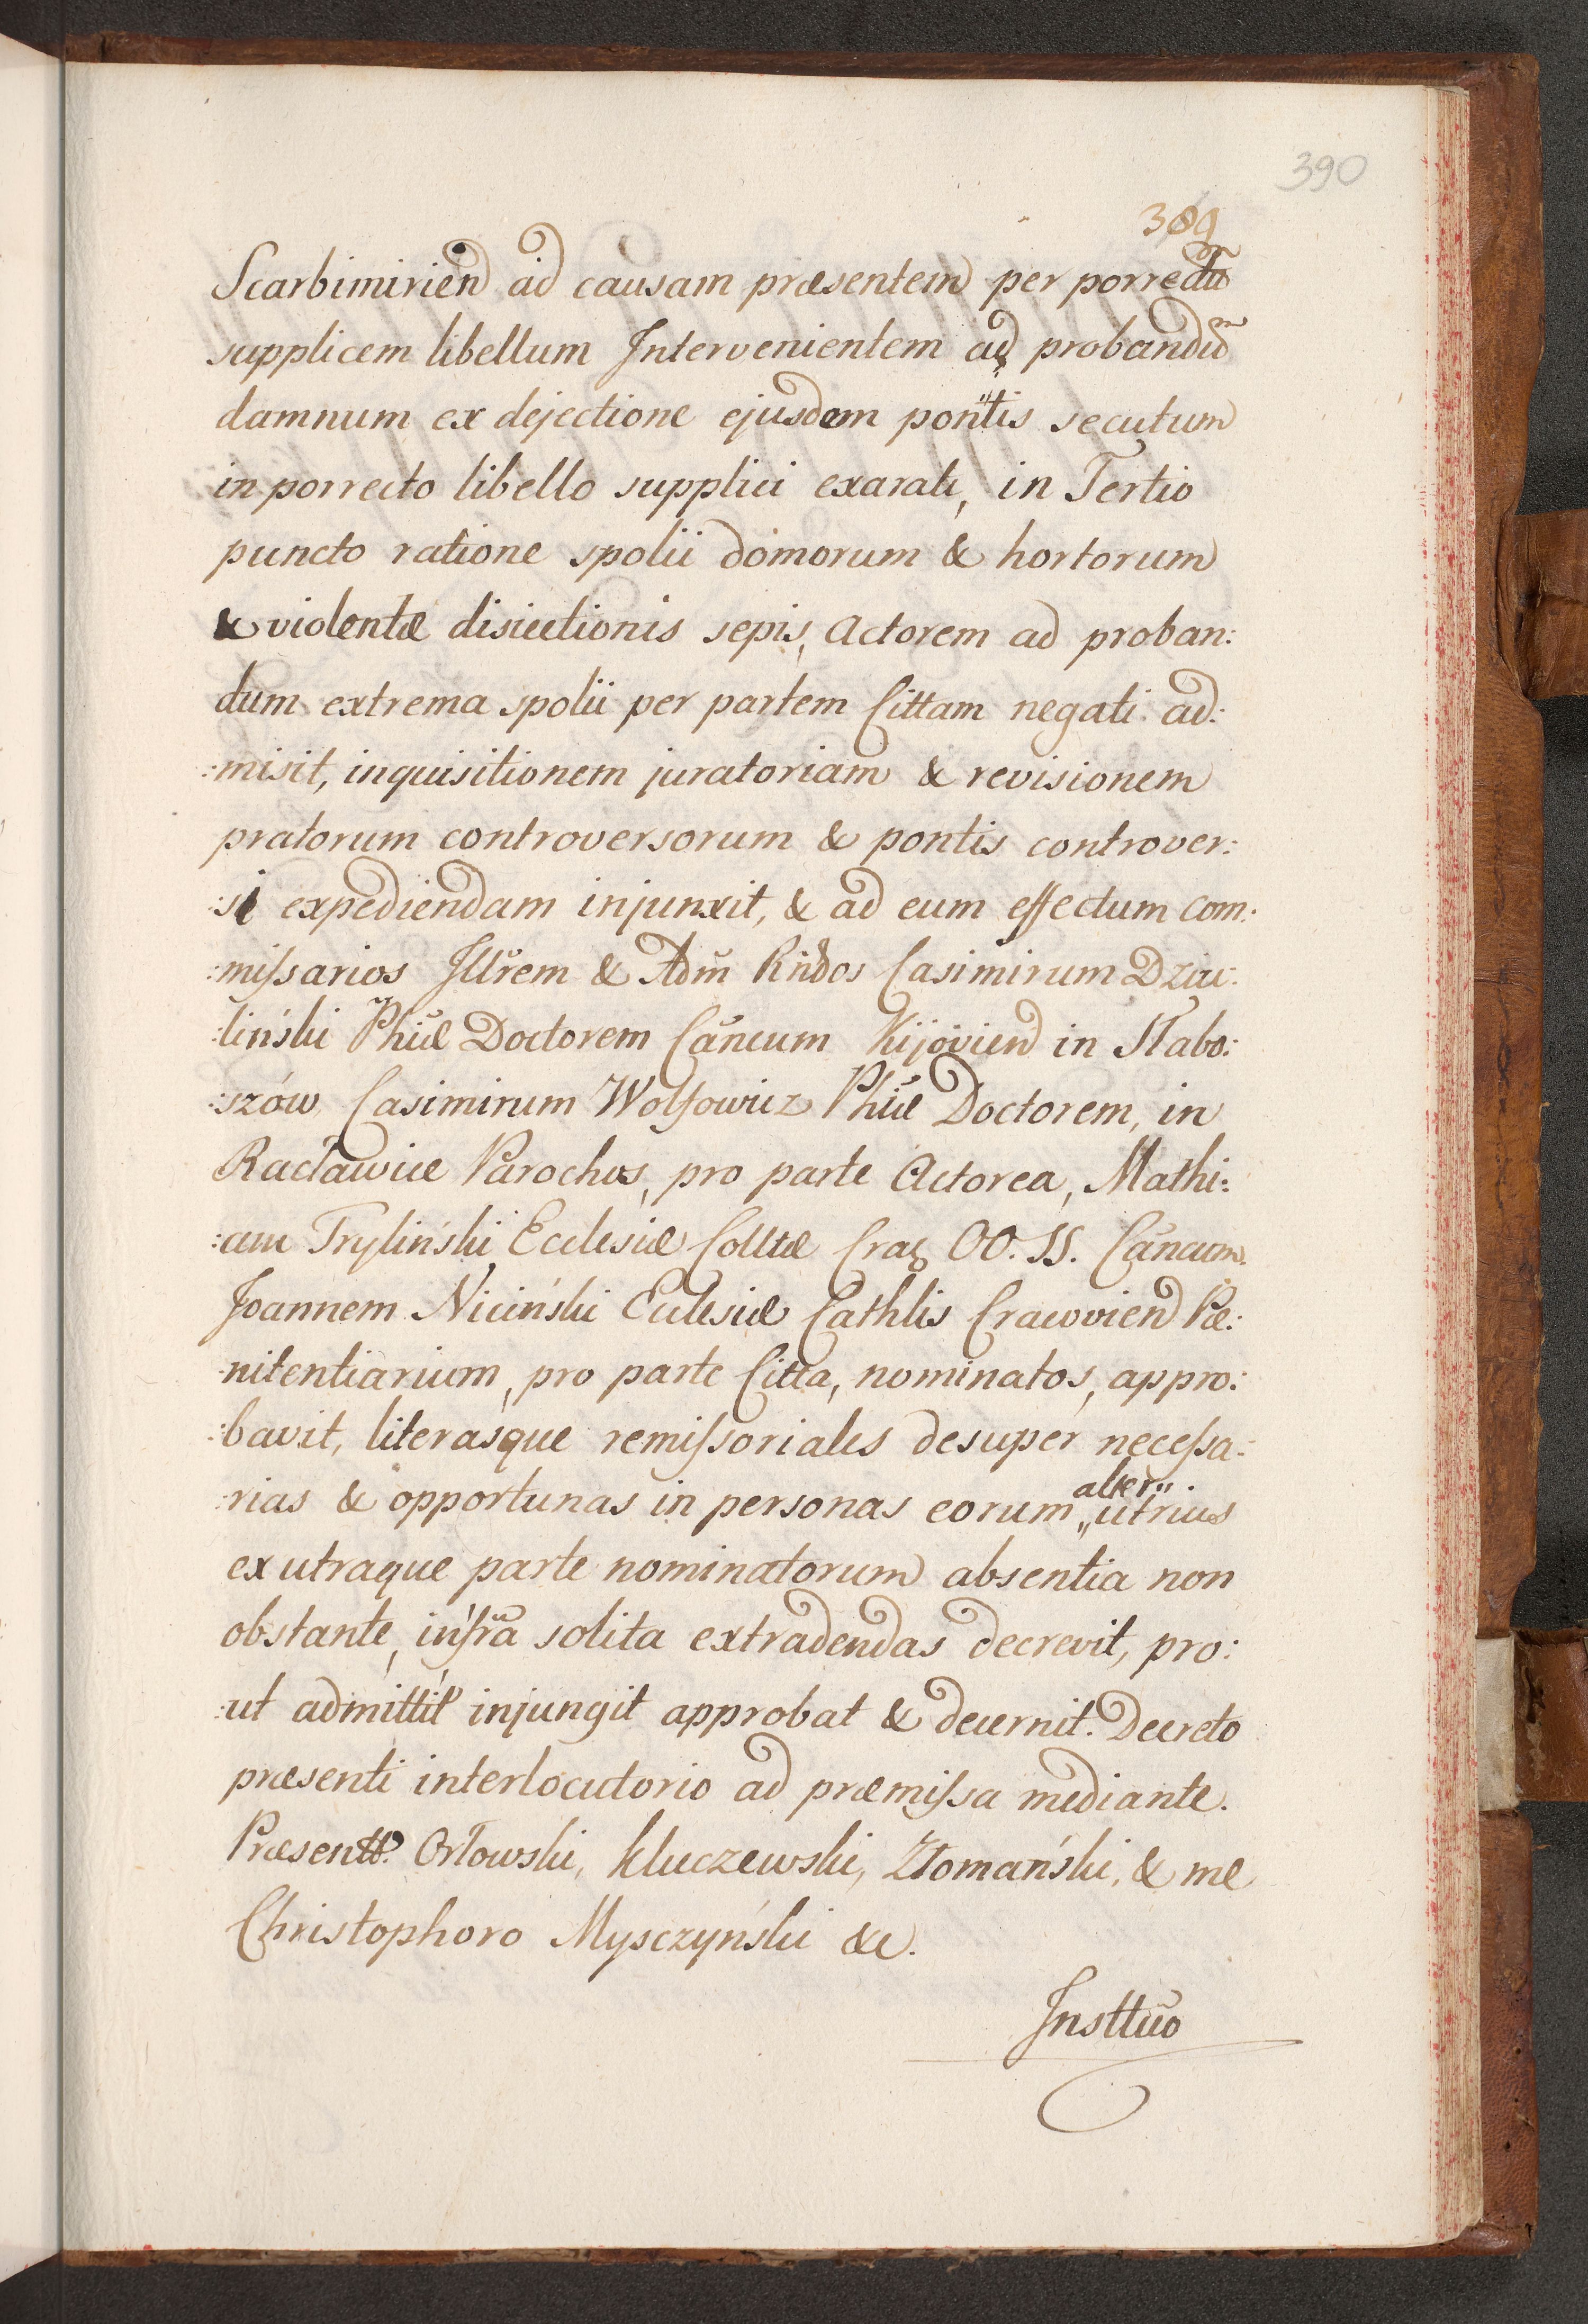 390
389
Scarbimirień ad causam præsentem per porrectũ
supplicem libellum Intervenientem ad probandũm
damnum ex dejectione ejusdem pontis secutum
in porrecto libello supplici exarati, in Tertio
puncto ratione spolii domorum & hortorum
& violentæ disiectionis sepis, Actorem ad proban:
dum extrema spolii per partem Cittam negati ad:
:misit, inquisitionem juratoriam & revisionem
pratorum controversorum & pontis controver:
:si expediendam injunxit, & ad eum effectum Com:
:missarios Illr̃em & Adm̃ Rñdos Casimirum Dziu:
:liński Phiæ Doctorem Cãncum Kijovień in Słabo:
:szów, Casimirum Wolfowicz Phiæ Doctorem, in
Racławice Parochos, pro parte Actorea, Mathi:
:am Tryliński Ecclesiæ Colltæ Crac̨ OO. SS. Cãncum.
Joannem Niciński Ecclesiæ Cathlis Cracovień Pæ:
nitentiarium, pro parte Citta, nominatos, appro:
:bavit, literasque remissoriales desuper necessa:
:rias & opportunas in personas eorum „utrius
alter„
ex utraque parte nominatorum absentia non
obstante, infra solita extradendas decrevit, pro:
:ut admittit injungit approbat & decernit. Decreto
præsenti interlocutorio ad præmissa mediante.
Præsentt. Orłowski, Kluczewski, Złomański, & me
Christophoro Mysczyński &c.
Insttũo